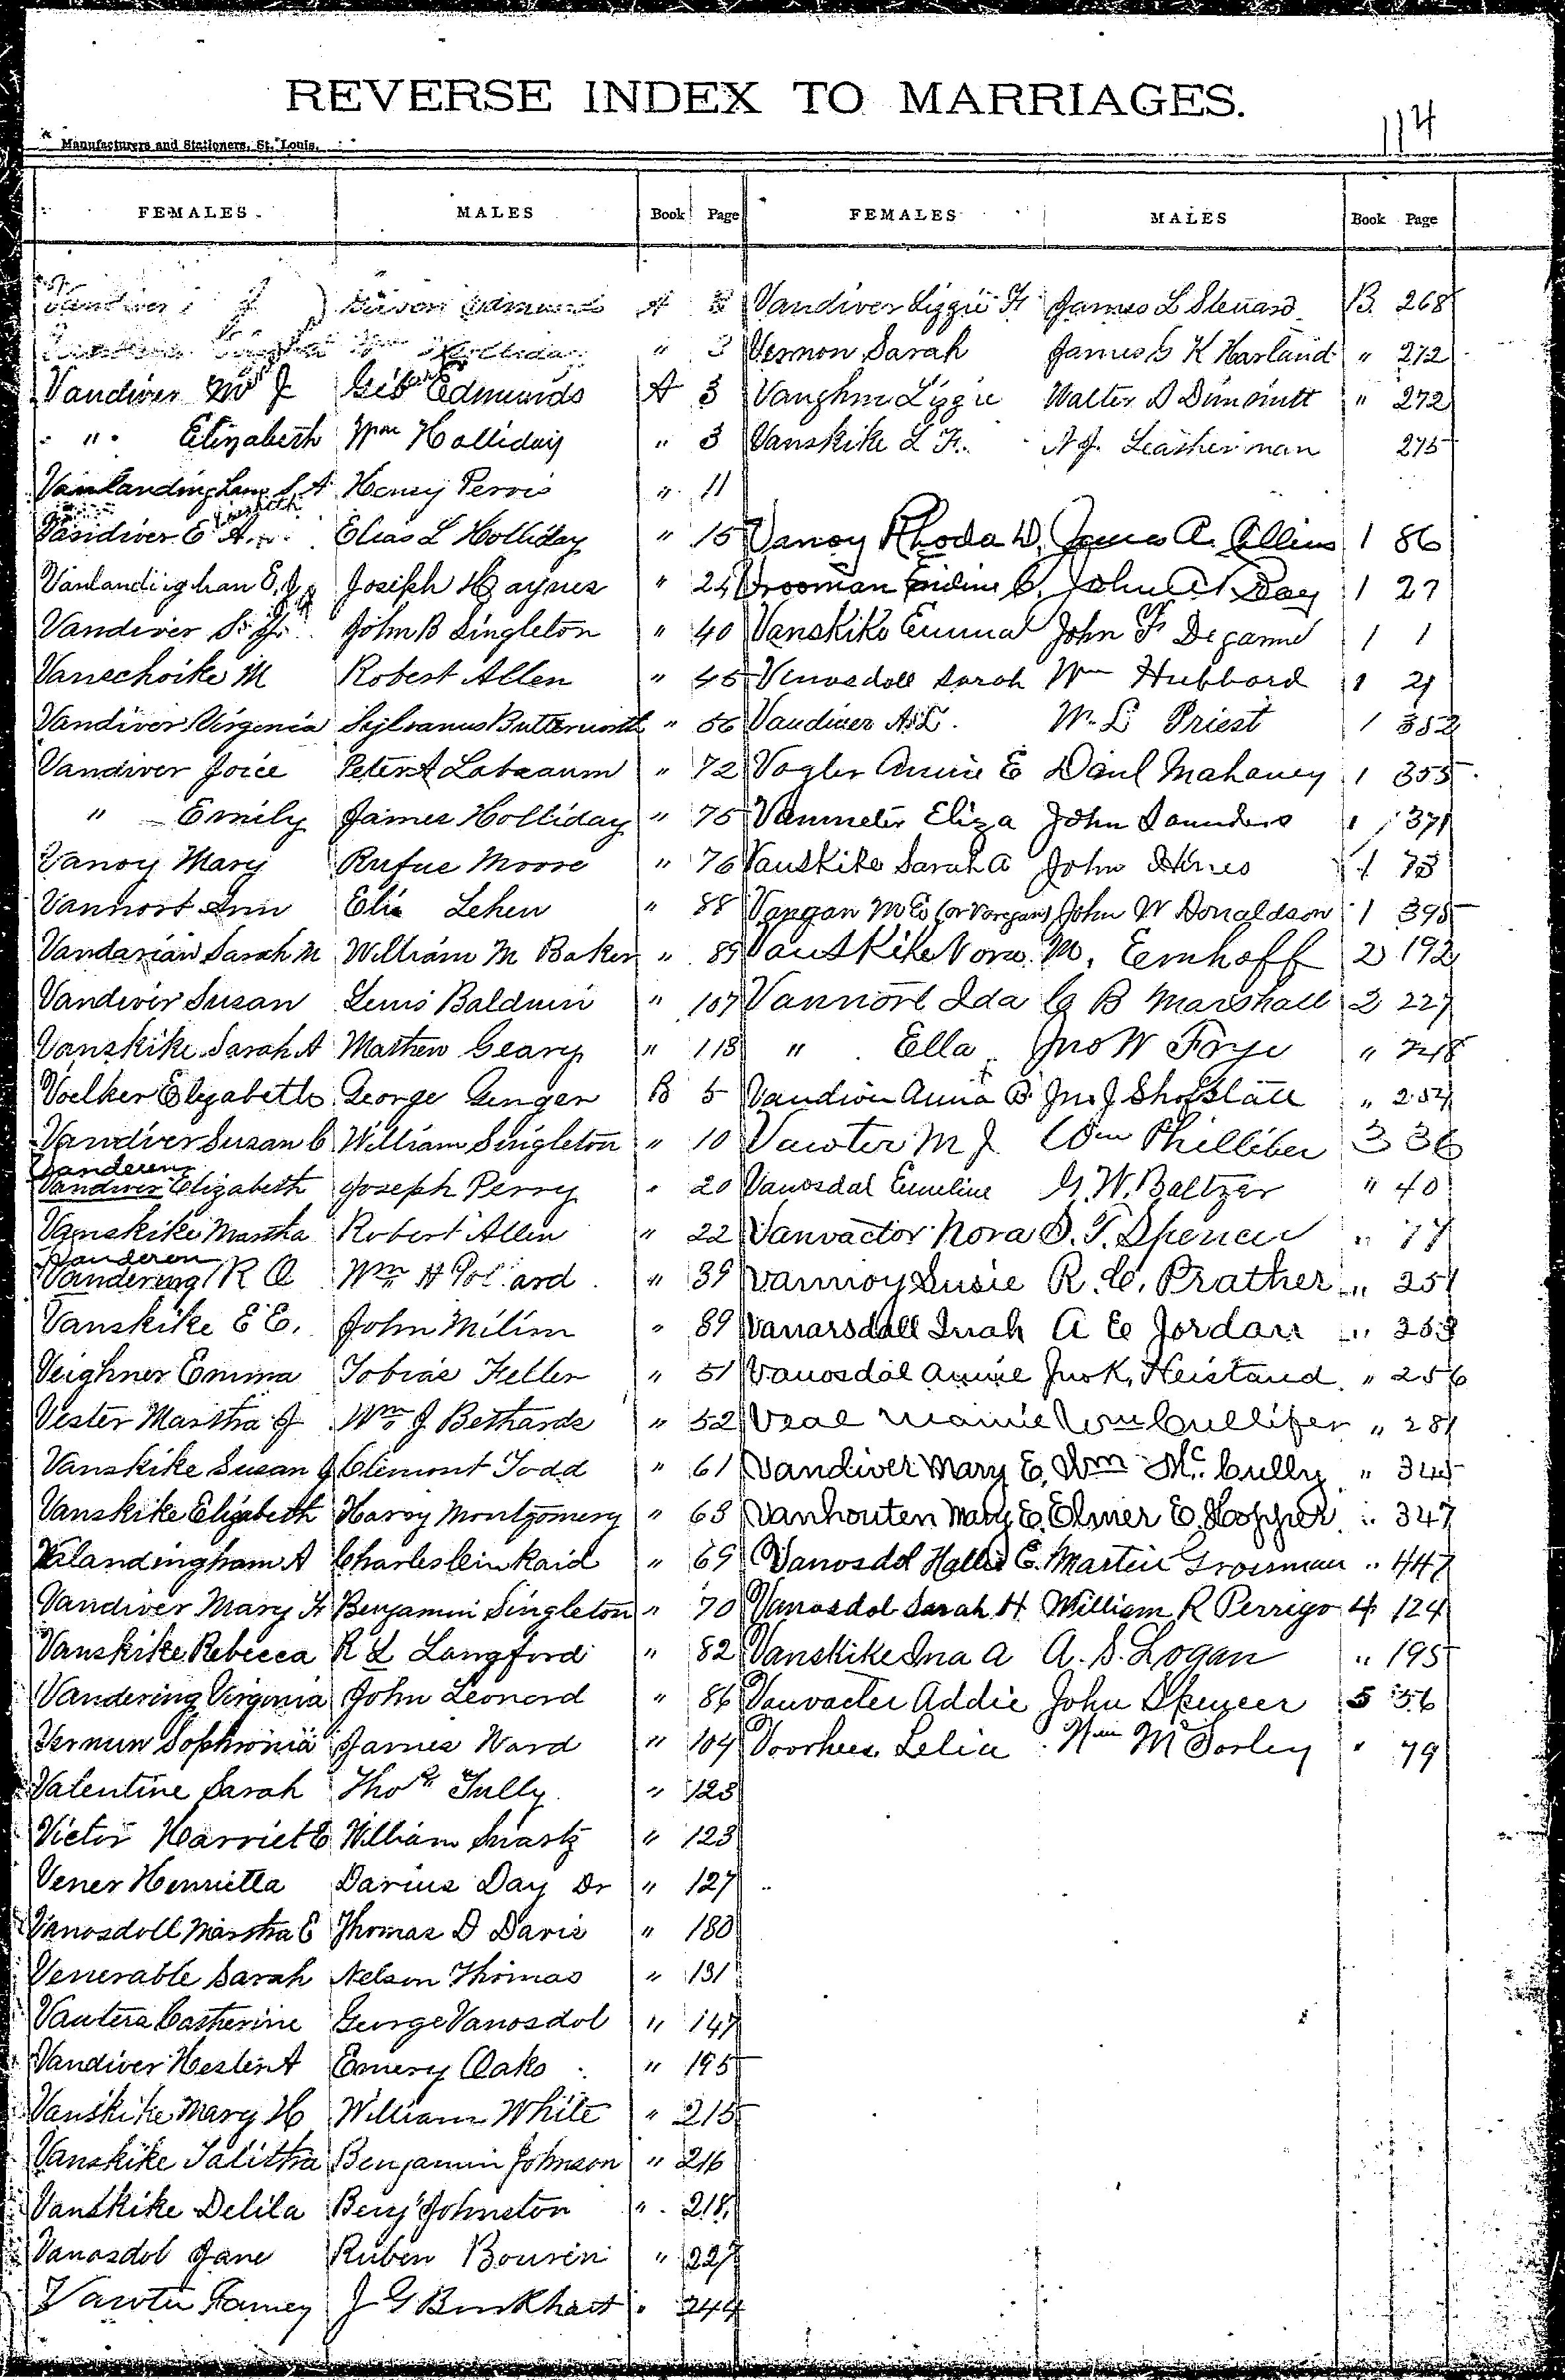 REVERSE INDEX TO MARRIAGES.
114
Manufacturers and Stationers, St. Louis.
FEMALES MALES Book Page FEMALES MALES Book Page
Vandiver J Edmunds A 3
" 3
Vandiver J Edmunds A 3
" Elizabeth Wm Holliday " 3
Vanlandingham S A Henry Pervis " 11
Vandiver E A Elias L Holliday " 15
Vanlandingham E. J. Joseph Haynes " 24
Vandiver S. John B Singleton " 40
Vanschoike M Robert Allen " 45
Vandiver Virginia Sylvanus Butterworth " 56
Vandiver Joice Peter A Labeaum " 72
" Emily James Holliday " 75
Vanoy Mary Rufus Moore " 76
Vannort Ann Eli Lehew " 88
Vandarian Sarah M William M Baker " 89
Vandiver Susan Lewis Baldwin " 107
Vanskike Sarah A Mathew Geary " 113
Voelker Elizabeth George Genger B 5
Vandiver Susan C William Singleton " 10
Vanderen
Vandiver Elizabeth Joseph Perry " 20
Vanskike Martha Robert Allen " 22
Vanderen
Vandering R A Wm H Pollard " 39
Vanskike E E. John Milim " 89
Veighner Emma Tobias Feller " 51
Vester Martha J Wm J Bethards " 52
Vanskike Susan J Climont Todd " 61
Vanskike Elizabeth Harvy Montgomery " 63
Valandingham A Charles Cinkaid " 69
Vandiver Mary F Benjamin Singleton " 70
Vanskike Rebecca R L Langford " 82
Vandering Virginia John Leonard " 86
Vernun Sophronia James Ward " 104
Valentine Sarah Thos Tully " 123
Victor Harriet E William Swartz " 123
Vener Henrietta Darius Day Dr " 127
Vanosdoll Martha E Thomas D Davis " 180
Venerable Sarah Nelson Thomas " 131
Vauters Catherine George Vanosdol " 147
Vandiver Hester A Emery Oaks " 195
Vanskike Mary H William White " 215
Vanskike Talitha Benjamin Johnson " 216
Vanskike Delila Benj Johnston " 218
Vanosdol Jane Ruben Bouren " 227
Vawter Fanney J G Burkhart " 244
Vandiver Lizzie F James L Steward B. 268
Vernon Sarah James G K Harland " 272
Vaughn Lizzie Walter D Dimmitt " 272
Vanskike L F. A J. Leatherman 275
Vanoy Rhoda D. James A. Collins 1 86
Vrooman C. John A Day 1 27
Vanskike Emma John F Degarmo 1 1
Venosdoll Sarah Wm Hubbard 1 21
Vandiver A. L. W. L Priest 1 352
Vogler Annie E Danl Mahaney 1 355
Vanmeter Eliza John Saunders 1 371
Vanskike Sarah A John Hines 1 73
Vangan M E (or Varegan) John W Donaldson 1 395
Vanskike Nora M. Emhoff 2 192
Vannort Ida C B Marshall 2 227
" Ella Jno W Frye " 248
Vandiver Anna B. Jno J Shofstall " 254
Vawter M J Wm Philliber 3 36
Vanosdal Emeline G. W. Baltzer " 40
Vanvactor Nora S. T. Spencer " 77
Vannoy Susie R. C. Prather " 251
Vanarsdall Inah A E Jordan " 253
Vanosdal Annie Jno K. Heistand " 256
Veal Mamie Wm Cullifer " 281
Vandiver Mary E. Wm Mc Cully " 345
Vanhouten Mary E. Elmer E. Hopper " 347
Vanosdol Hallie E. Martin Grossman " 447
Vanosdol Sarah H William R Perrigo 4 124
Vanskike Ina A A. S. Logan " 195
Vanvacter Addie John Spencer 5 56
Voorhees Lelia Wm McSorley " 79